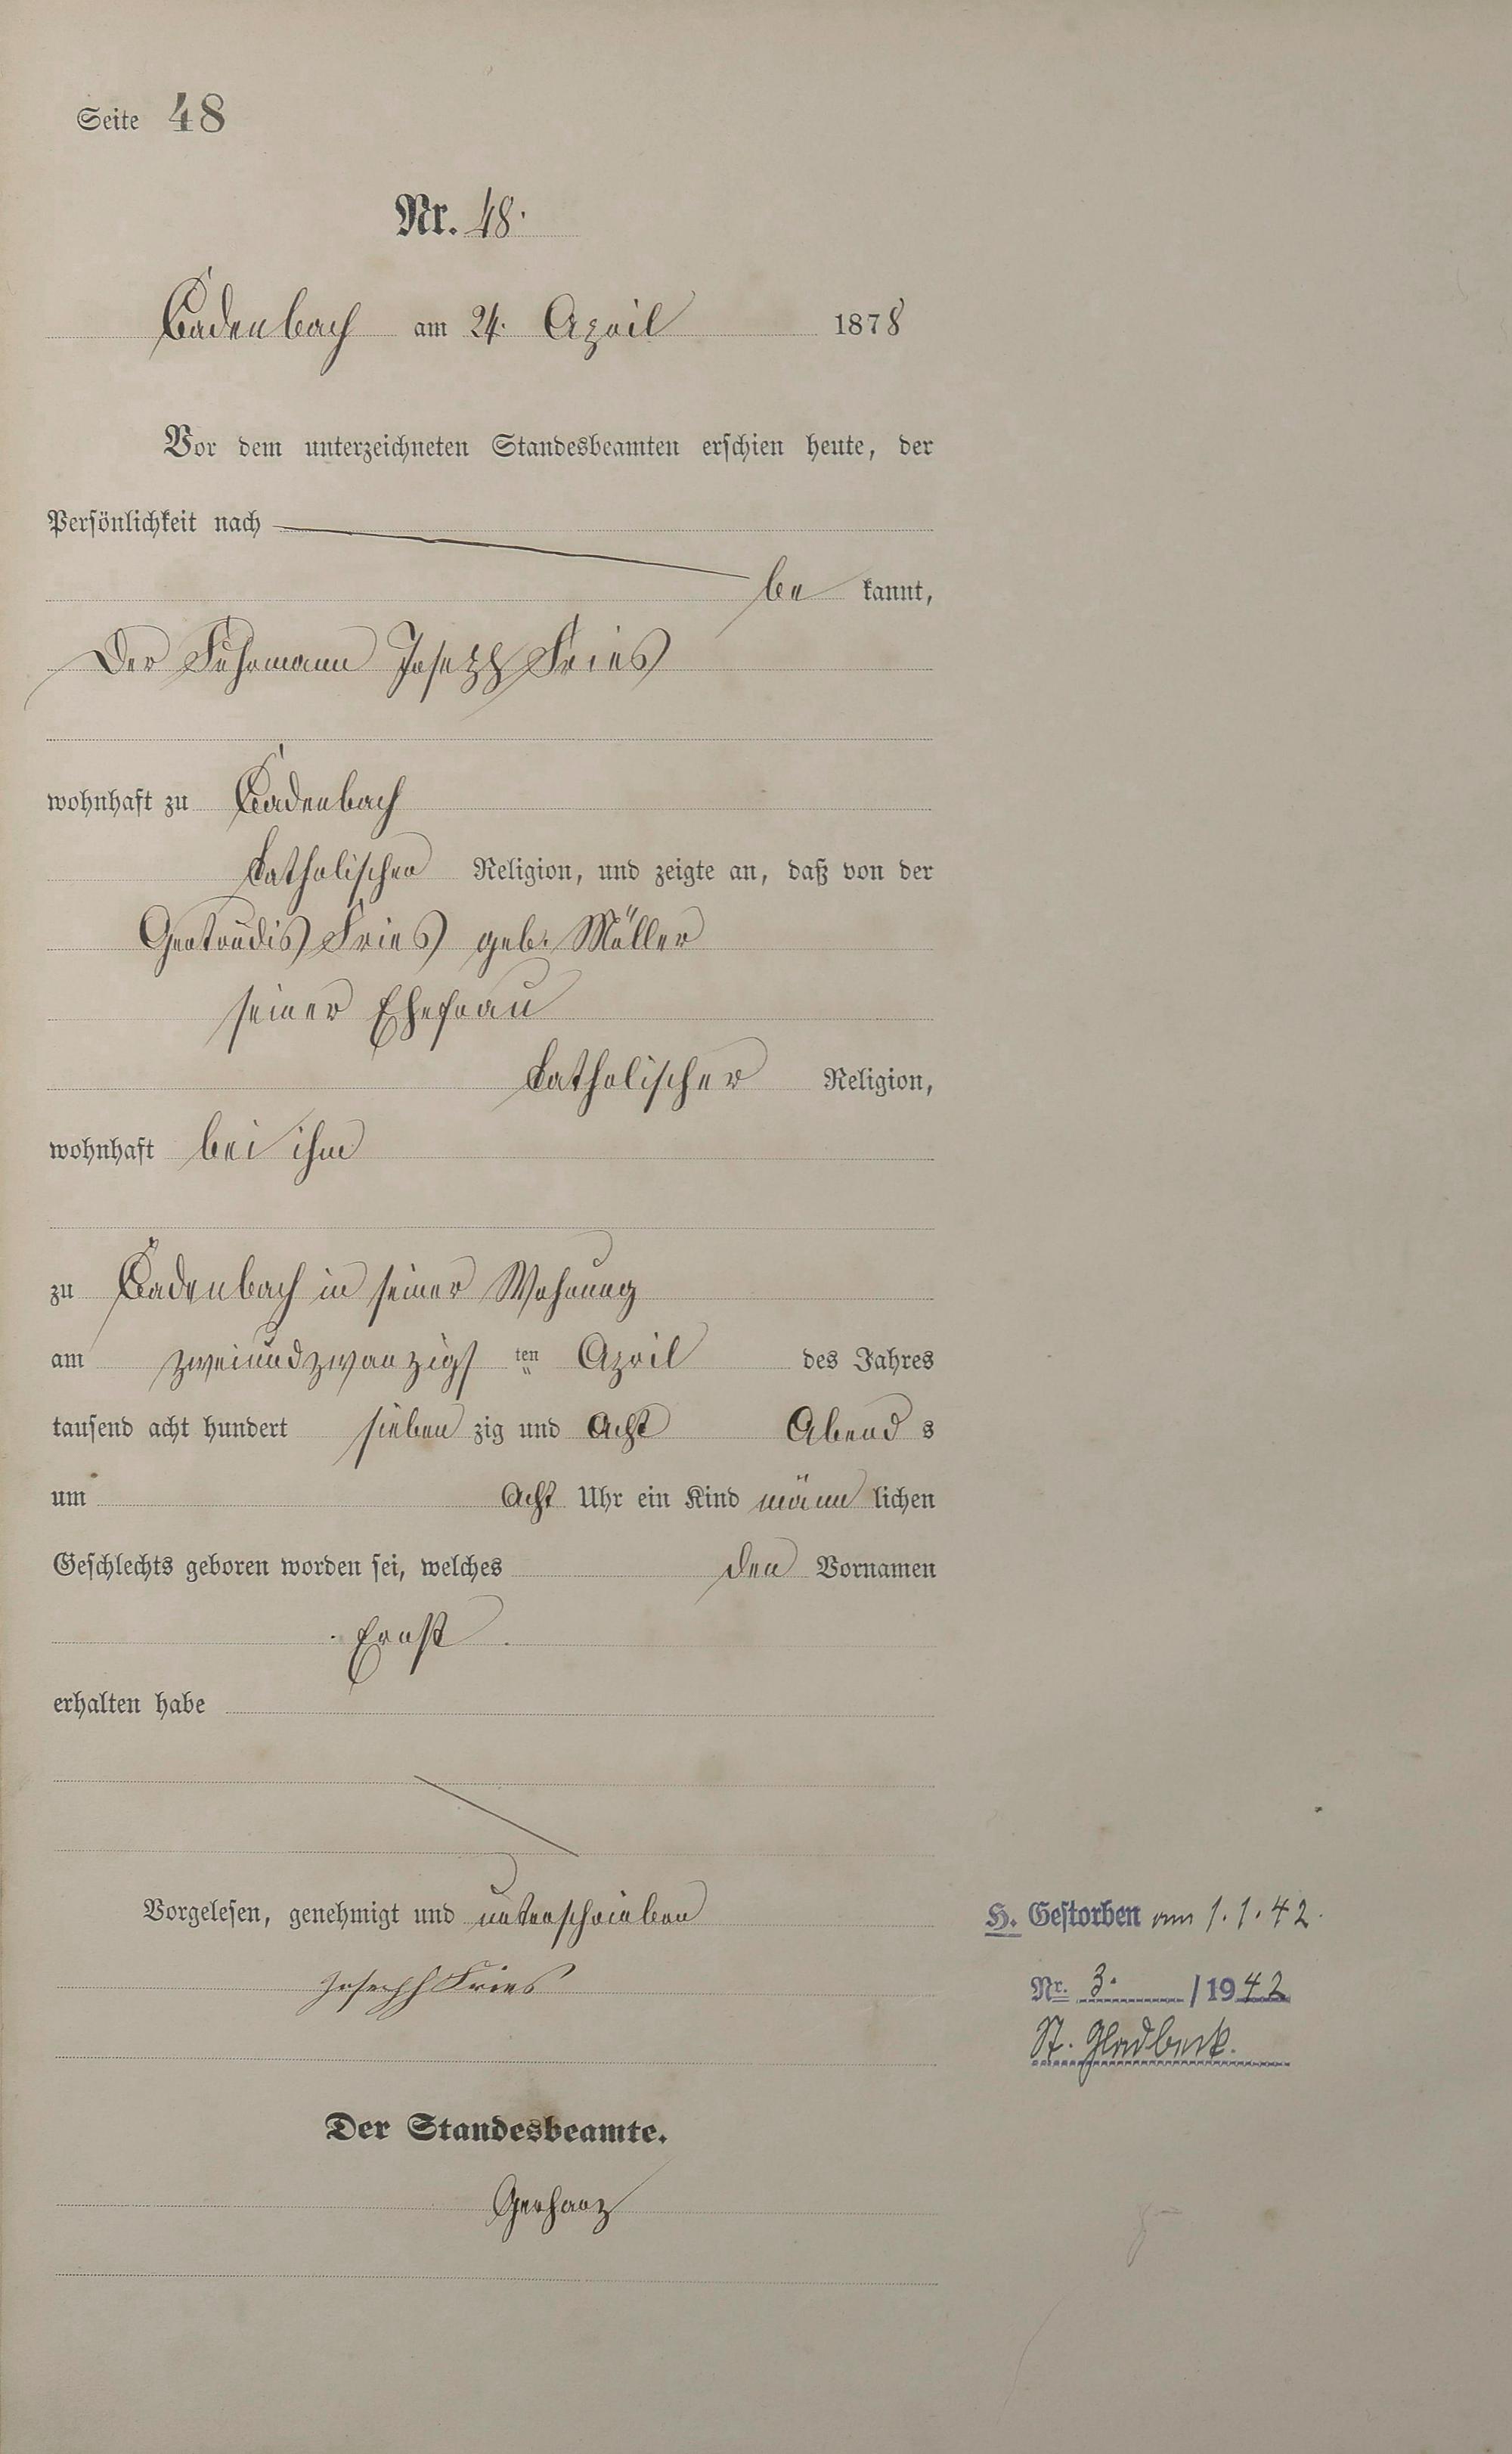 Seite 48
Nr. 48.
Cadenbach am 24. April 1878
Vor dem unterzeichneten Standesbeamten erschien heute, der
Persönlichkeit nach
be kannt,
Der Fuhrmann Joseph Fries
wohnhaft zu Cadenbach
katholischer Religion, und zeigte an, daß von der
Gertrudis Fries geb. Müller
seiner Ehefrau
katholischer Religion,
wohnhaft bei ihm
zu Cadenbach in seiner Wohnung
am zweiundzwanzigs ten April des Jahres
tausend acht hundert sieben zig und Acht Abend s
um Acht Uhr ein Kind männ lichen
Geschlechts geboren worden sei, welches den Vornamen
Ernst.
erhalten habe
Vorgelesen, genehmigt und unterschrieben
Joseph Fries
Der Standesbeamte.
Gerharz
H. Gestorben am 1.1.42.
Nr. 3. /1942
St. Gladbeck.